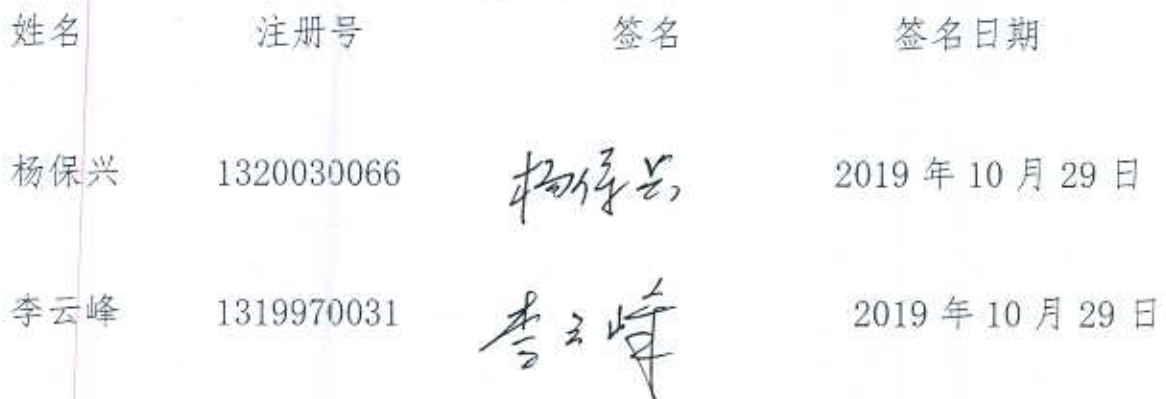 姓名 注册号 签名 签名日期
杨保兴 1320030066 杨保兴 2019 年 10 月 29 日
李云峰 1319970031 李云峰 2019 年 10 月 29 日